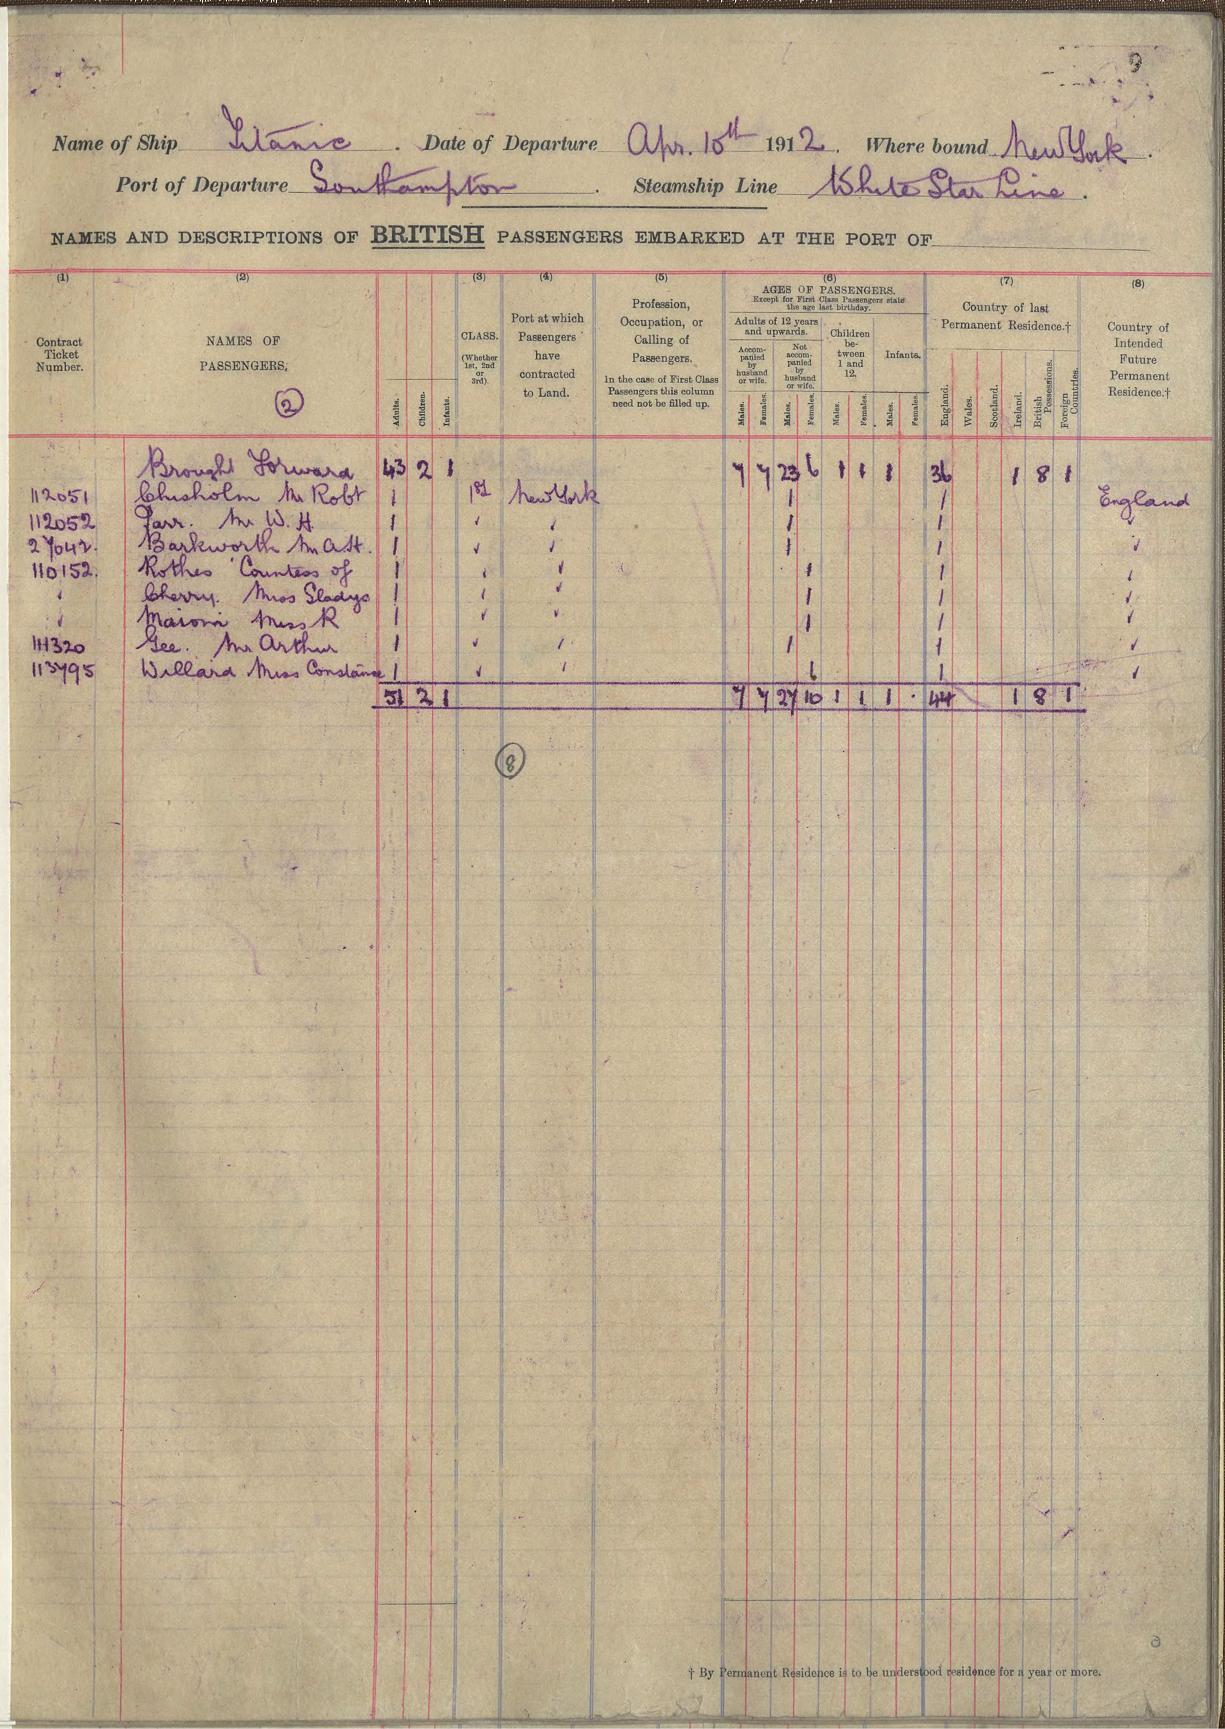 9
Name of Ship Titanic. Date of Departure Apr. 10th 1912. Where bound New York.
Port of Departure Southampton. Steamship Line White Star Line.
NAMES AND DESCRIPTIONS OF BRITISH PASSENGERS EMBARKED AT THE PORT OF
(1) (2) (3) (4) (5) (6) (7) (8)
Contract Ticket Number.
NAMES OF PASSENGERS.
2
Adults. Children. Infants.
CLASS. (Whether 1st, 2nd or 3rd).
Port at which Passengers have contracted to Land.
Profession, Occupation, or Calling of Passengers.
In the case of First Class Passengers this column need not be filled up.
AGES OF PASSENGERS.
Except for First Class Passengers state the age last birthday.
Adults of 12 years and upwards. Children between 1 and 12. Infants.
Accompanied by husband or wife. Not accompanied by husband or wife.
Males. Females. Males. Females. Males. Females. Males. Females.
Country of last Permanent Residence.†
England. Wales. Scotland. Ireland. British Possessions. Foreign Countries.
Country of Intended Future Permanent Residence.†
Brought Forward 43 2 1 7 7 23 6 1 1 1 36 1 8 1
112051 Chisholm Mr Robt 1 1st New York 1 1 England
112052 Parr. Mr W. H. 1 ✓ ✓ 1 1 ✓
27042. Barkworth Mr A.H. 1 ✓ ✓ 1 1 ✓
110152. Rothes Countess of 1 ✓ ✓ 1 1 ✓
✓ Cherry. Miss Gladys 1 ✓ ✓ 1 1 ✓
✓ Maioni Miss R 1 ✓ ✓ 1 1 ✓
111320 Gee. Mr Arthur 1 ✓ ✓ 1 1 ✓
113795 Willard Miss Constance 1 ✓ ✓ 1 1 ✓
51 2 1 7 7 27 10 1 1 1 . 44 1 8 1
8
† By Permanent Residence is to be understood residence for a year or more.